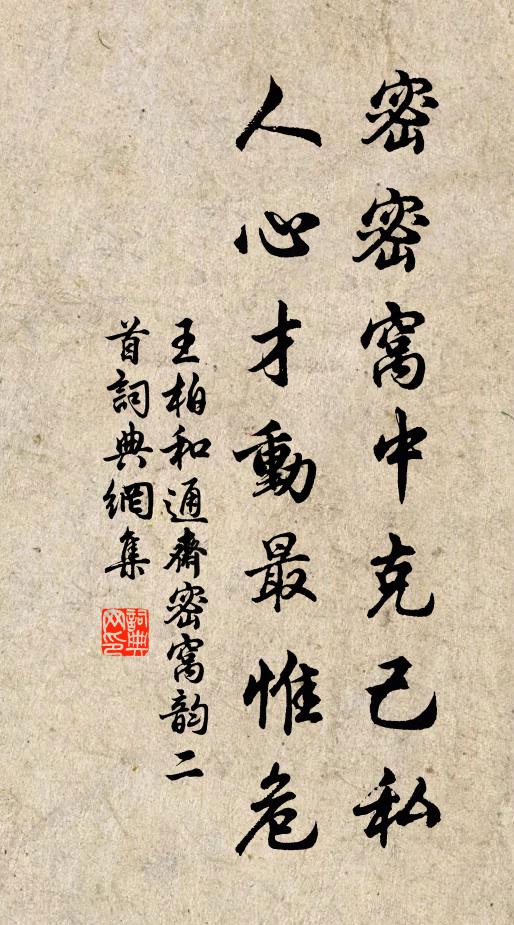 密密窩中克己私
人心才動最惟危
王柏和通齋密窩韵二
首詞典網集
詞典网印